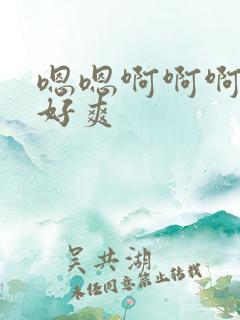 嗯嗯啊啊啊
好爽
吴共湖
未经同意禁止转载